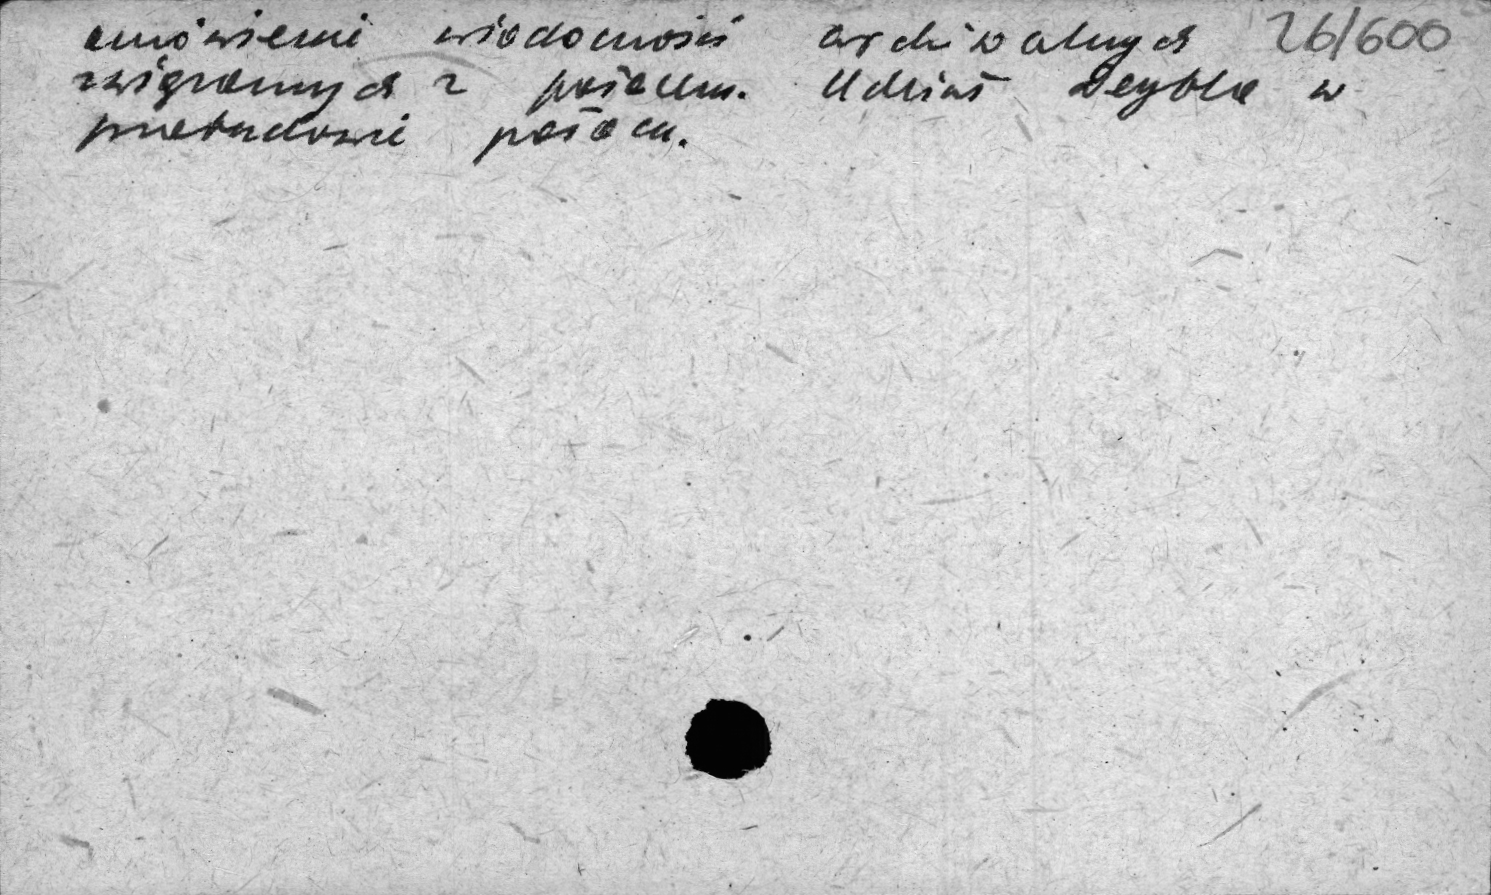 omówienie wiadomości archiwalnych 26/600
związanych z pałacem. Udział Deybla w
przebudowie pałacu.